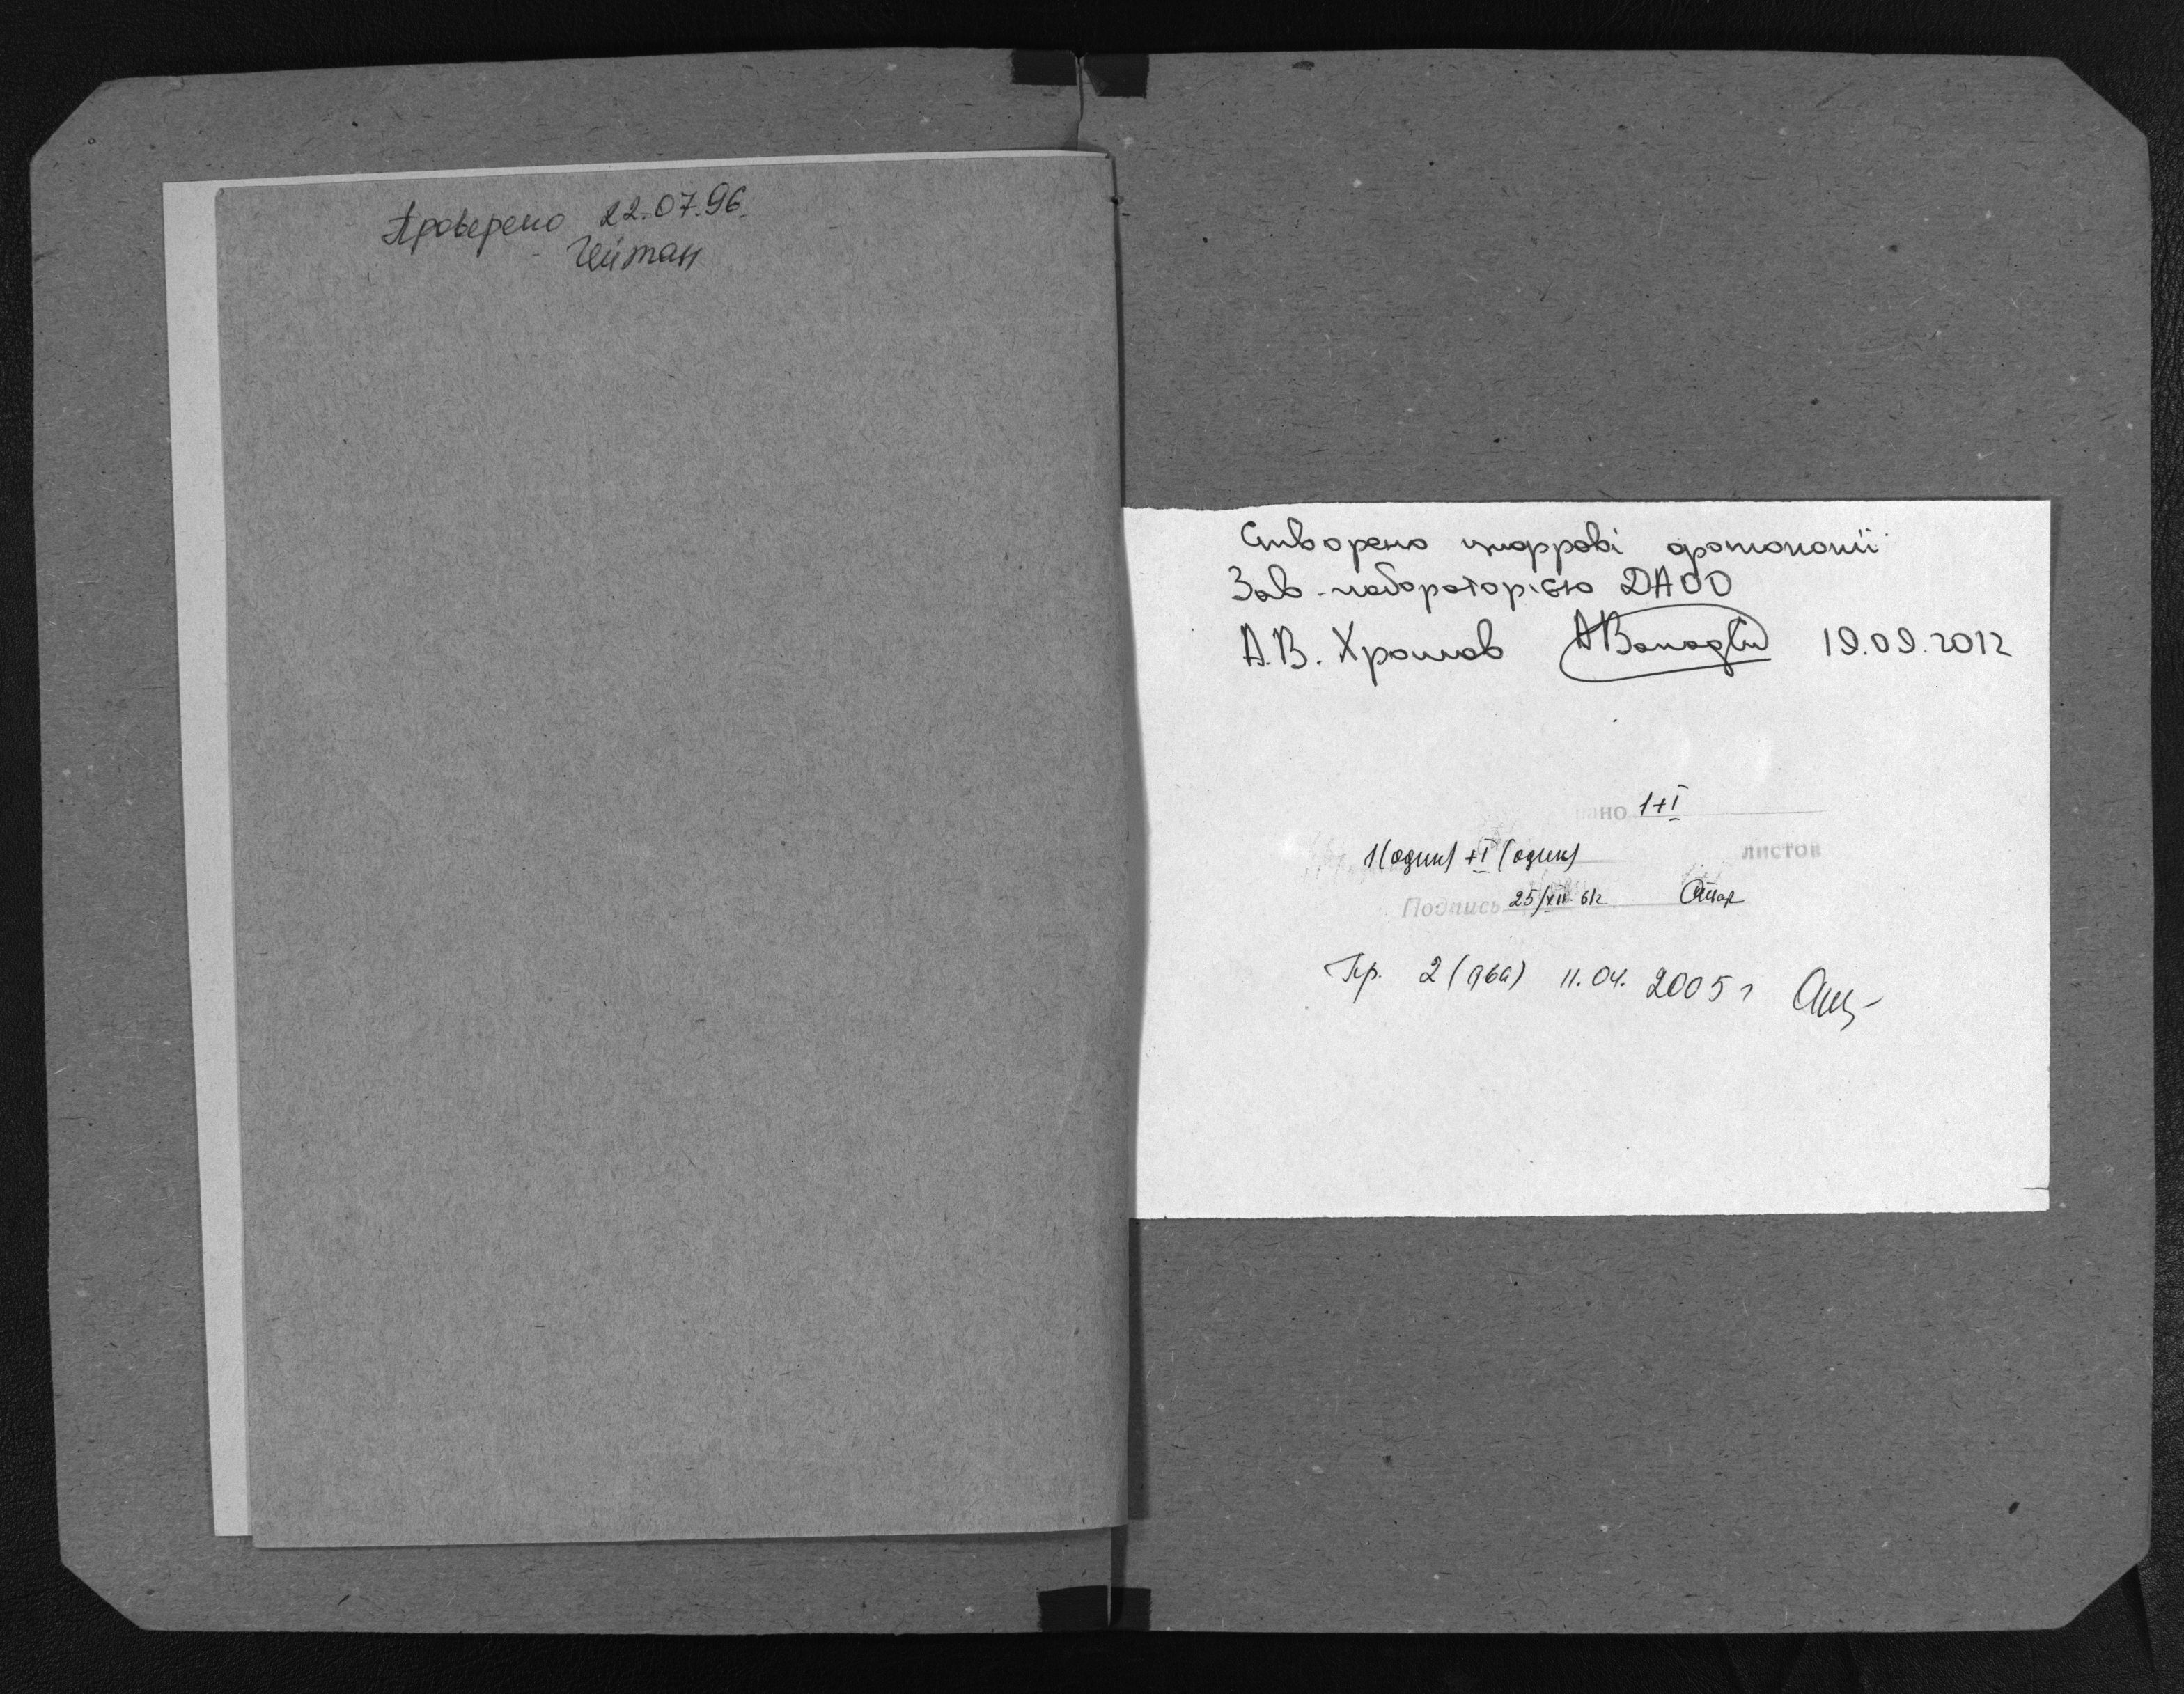 Проверено 22.07.96.
Гейман
Створено цифрові фотокопії
Зав. лабораторією ДАОО
А.В. Хромов 19.09.2012
но 1+I
1(один) +I (один) листов
Подпись 25/XII 61г
Пр. 2 (два) 11.04. 2005 г